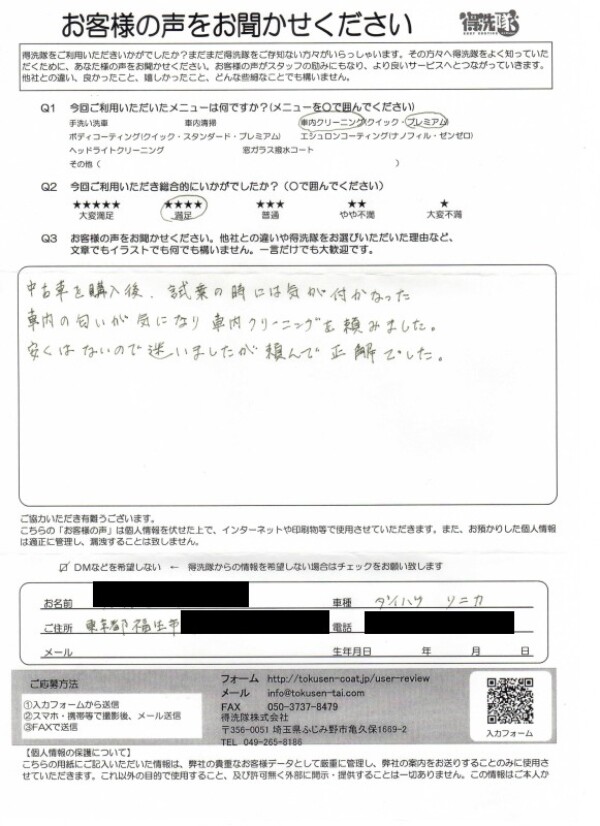 お客様の声をお聞かせください
得洗隊
得洗隊をご利用いただきいかがでしたか？まだまだ得洗隊をご存知ない方々がいらっしゃいます。その方々へ得洗隊をよく知っていた
だくために、あなた様の声をお聞かせください。お客様の声がスタッフの励みにもなり、より良いサービスへとつながっていきます。
他社との違い、良かったこと、嬉しかったこと、どんな些細なことでも構いません。
Q1 今回ご利用いただいたメニューは何ですか？(メニューを〇で囲んでください)
手洗い洗車 車内清掃 車内クリーニング(クイック・プレミアム)
ボディコーティング(クイック・スタンダード・プレミアム) エシュロンコーティング(ナノフィル・ゼンゼロ)
ヘッドライトクリーニング 窓ガラス撥水コート
その他（ ）
Q2 今回ご利用いただき総合的にいかがでしたか？（〇で囲んでください）
★★★★★ ★★★★ ★★★ ★★ ★
大変満足 満足 普通 やや不満 大変不満
Q3 お客様の声をお聞かせください。他社との違いや得洗隊をお選びいただいた理由など、
文章でもイラストでも何でも構いません。一言だけでも大歓迎です。
中古車を購入後、試乗の時には気が付かなった
車内の匂いが気になり車内クリーニングを頼みました。
安くはないので迷いましたが頼んで正解でした。
ご協力いただき有難うございます。
こちらの「お客様の声」は個人情報を伏せた上で、インターネットや印刷物等で使用させていただきます。また、お預かりした個人情報
は適正に管理し、漏洩することは致しません。
☑ DMなどを希望しない ← 得洗隊からの情報を希望しない場合はチェックをお願い致します
お名前 車種 ダイハツ ソニカ
ご住所 東京都福生市 電話
メール 生年月日 年 月 日
ご応募方法
①入力フォームから送信
②スマホ・携帯等で撮影後、メール送信
③FAXで送信
フォーム http://tokusen-coat.jp/user-review
メール info@tokusen-tai.com
FAX 050-3737-8479
得洗隊株式会社
〒356-0051 埼玉県ふじみ野市亀久保1669-2
TEL 049-265-8186
入力フォーム
【個人情報の保護について】
こちらの用紙にご記入いただいた情報は、弊社の貴重なお客様データとして厳重に管理し、弊社の案内をお送りすることのみに使用さ
せていただきます。これ以外の目的で使用すること、及び許可無く外部に開示・提供することは一切ありません。この情報はご本人か